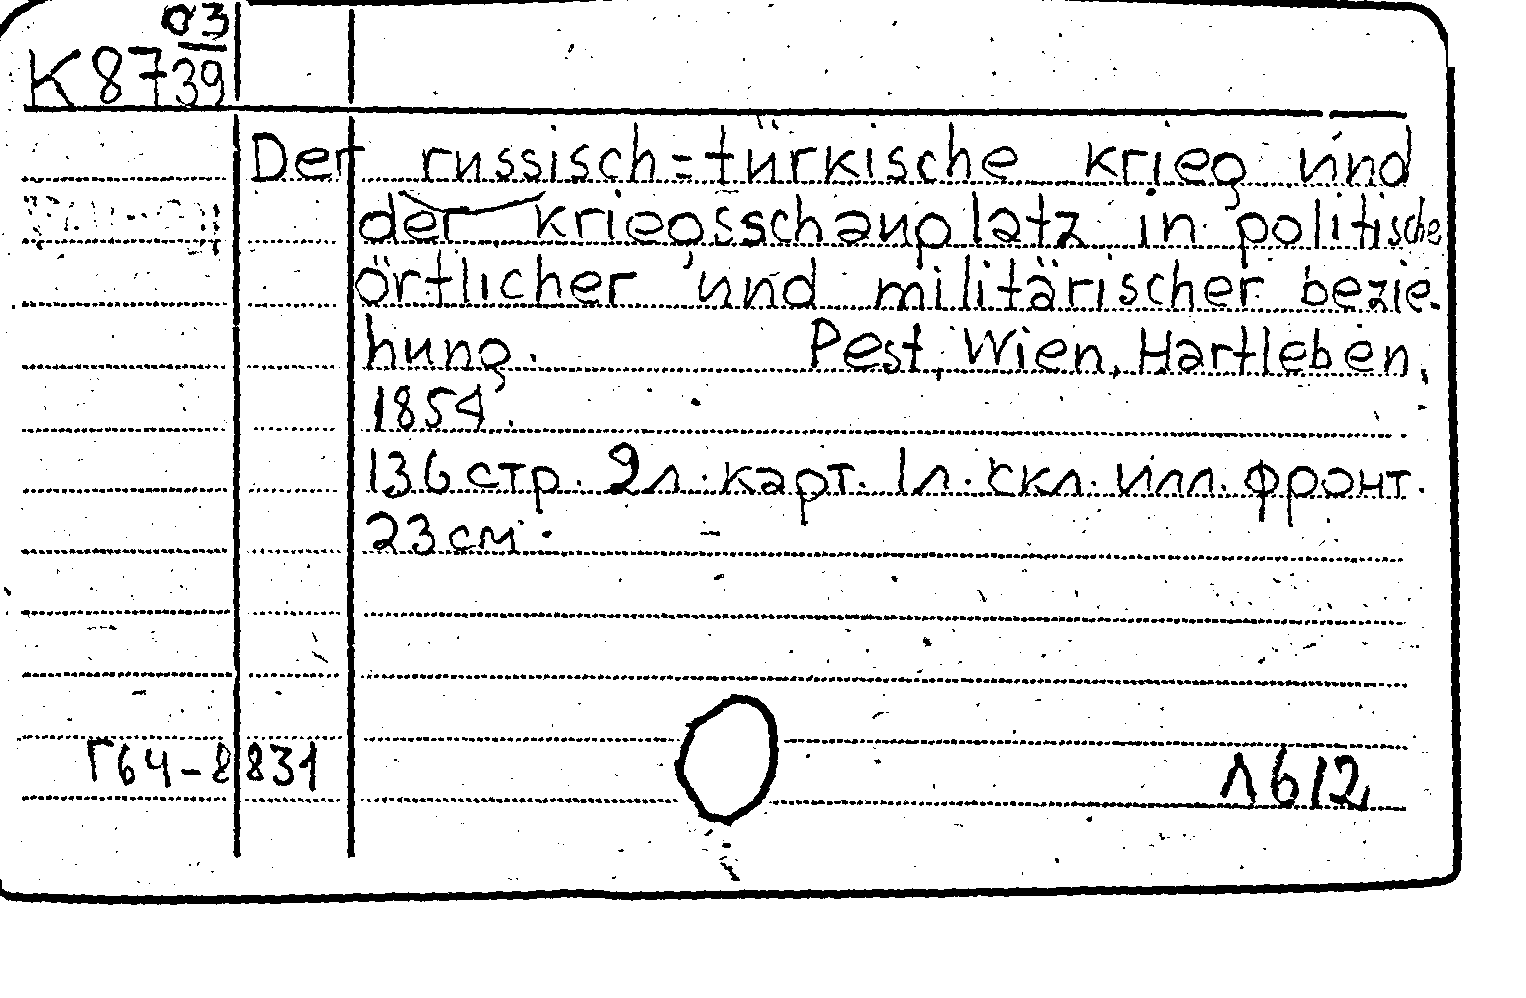 03
K 87 39
Der russisch=türkische krieg und
der kriegsschauplatz in politische
örtlicher und militärischer bezie-
hung. Pest, Wien, Hartleben,
1854.
136 стр. 2л. карт. 1л. скл. илл. фронт.
23 см.
Г64-8831
Л612